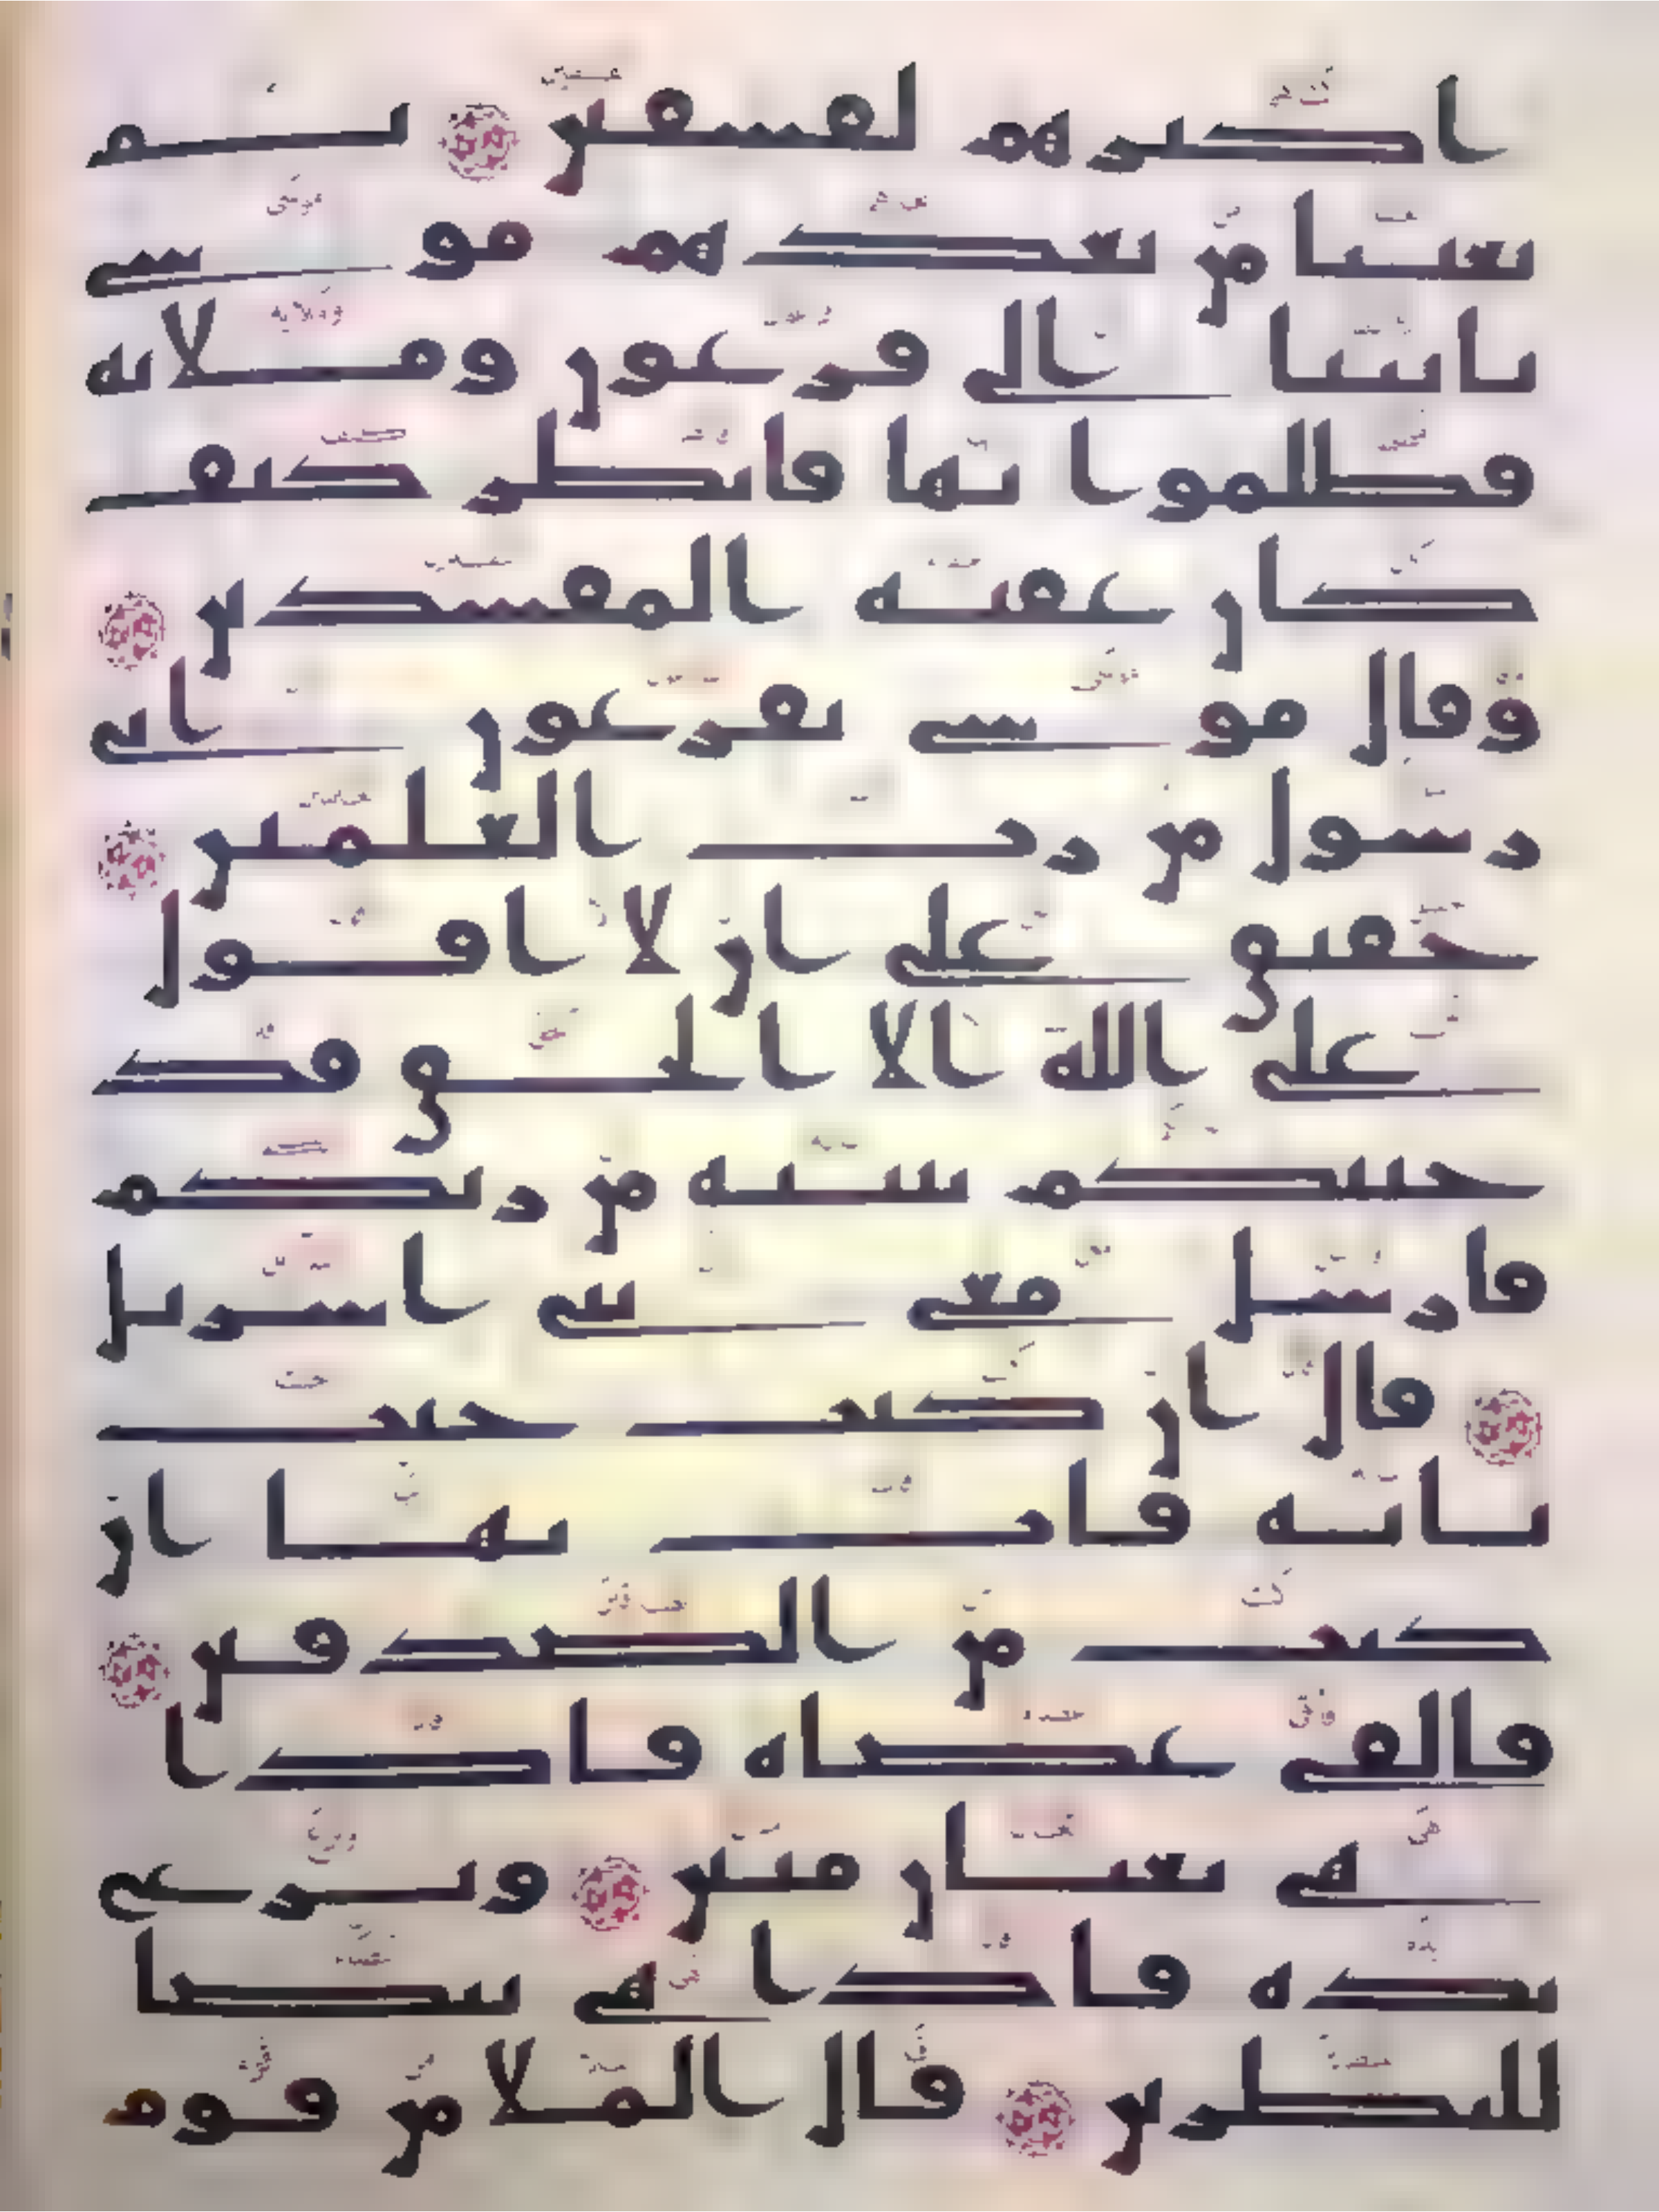 اكثرهم لفسقين ثم
بعثنا من بعدهم موسى
بايتنا الى فرعون وملايه
فظلموا بها فانظر كيف
كان عقبة المفسدين
وقال موسى يفرعون انى
رسول من رب العلمين
حقيق على ان لا اقول
على الله الا الحق قد
جيتكم ببينة من ربكم
فارسل معى بنى اسريل
قال ان كنت جيت
باية فات بها ان
كنت من الصدقين
فالقى عصاه فاذا
هى ثعبان مبين ونزع
يده فاذا هى بيضا
للنظرين قال الملا من قوم